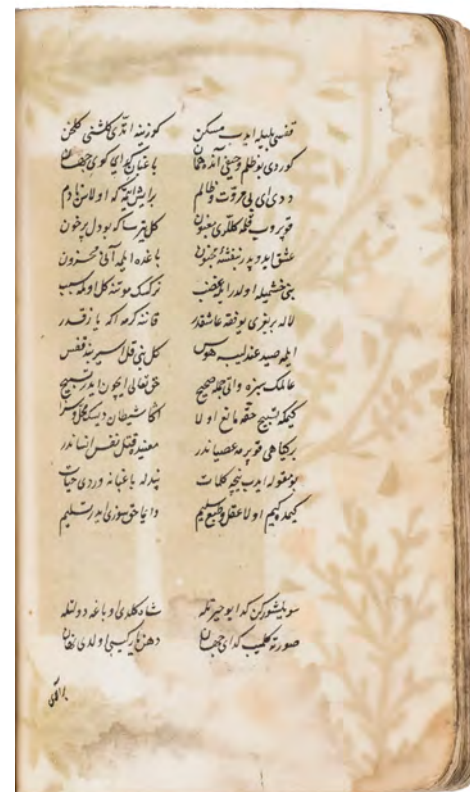 قفسی بلبله ایدب مسکن کوزینه اندی کلشنی کلخن
کوردی بو ظلم وحیفی آنده همان باغبان کدای کوی جهان
ددی ای بی مروّت و ظالم بر ایش ایتمه که اولاسن نادم
قوپروب قلمه کللری مغبون کل یتر سکا بو دل پرخون
عشق ایدیدر بنفشه مجنون باغده ایلمه آنی محزون
بنی خشمیله اولدر ایله غضب نرکسک موتنه کل اولمه سبب
لاله بر بغری یوفقه عاشقدر قاننه کرمه اکه یازقدر
ایلمه صید عندلیب هوس کل بنی قل اسیر بند قفس
عالمک سبزه والی جمله صحیح حق تعالی ایچون ایدر تسبیح
کیمکه تسبیح حقه مانع اولا اکا شیطان دیسک محل و سزا
بر کیاهی قوپرمه عصیاندر معنیده قتل نفس انساندر
بو مقوله ایدب نیجه کلمات پندله باغبانه وردی حیات
کیمده کیم اولا عقل و طبع سلیم دایما حق سوزی ایدر تسلیم
سویلشورکن کدا بو حیرتله شاه کلدی او باغه دولتله
صورته کلمیب کدای جهان دهن یار کیبی اولدی نهان